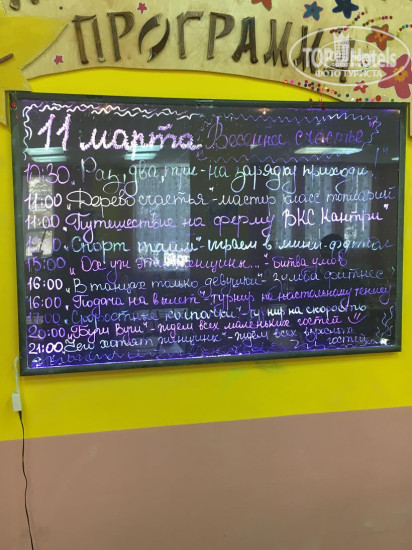 ПРОГРАМ
TOP Hotels
ФОТО ТУРИСТА
11 марта "Весеннее счастье"
10:30 "Раз, два, три - на зарядку приходи!"
11:00 "Дерево счастья" - мастер класс топиарий
11:00 "Путешествие на ферму ВКС Кантри"
"Спорт тайм" - играем в мини-футбол
15:00 "Ох уж эти женщины..." - битва умов
16:00 "В танцах только девушки" - зумба фитнес
16:00 "Подача на вылет" - турнир по настольному теннису
"Скоростные колпачки" - турнир на скорость
20:00 "Буги Вуги" - ждем всех маленьких гостей !!
21:00 "Чего хотят женщины" - ждем всех взрослых
гостей